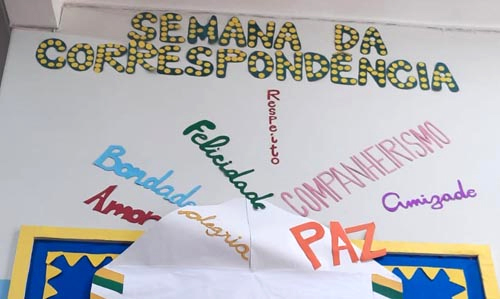 SEMANA DA
CORRESPONDÊNCIA
Respeito
Felicidade
COMPANHERISMO
Bondade
Amizade
Amor
alegria
PAZ